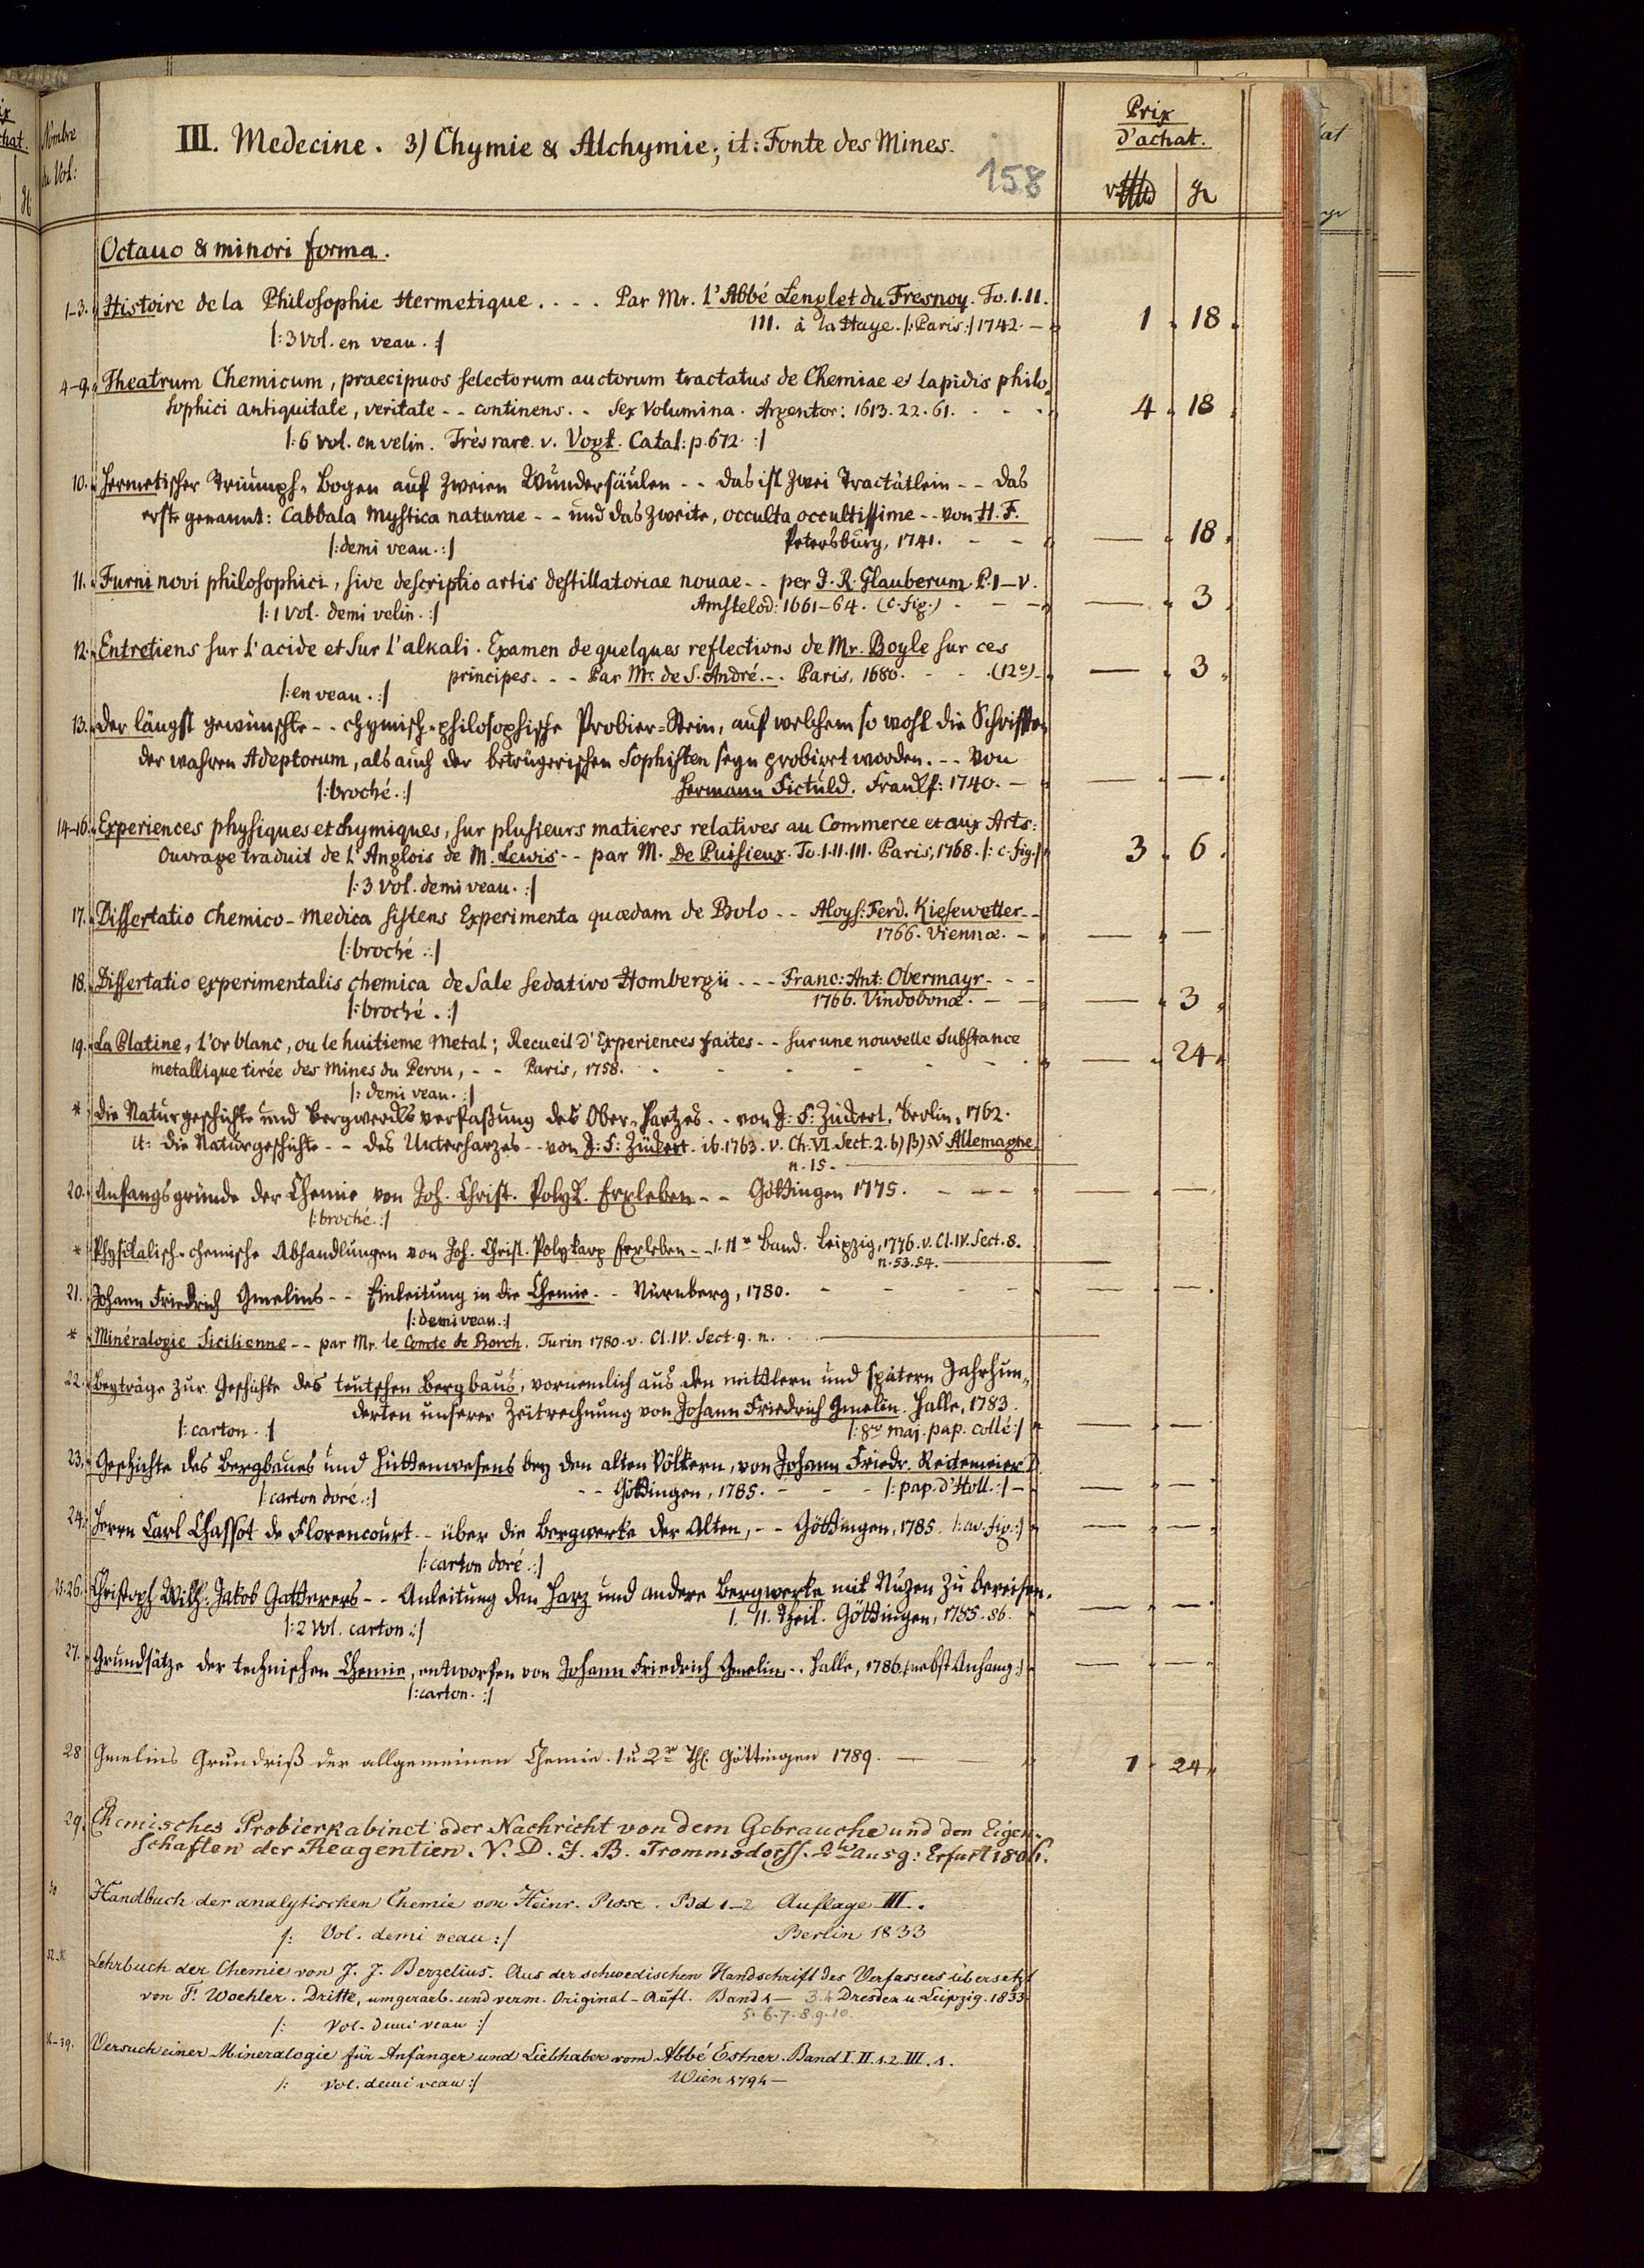 Nombre
du Vol:
III. Medecine. 3) Chymie & Alchymie; it: Fonte des Mines.
158
Prix
d'achat.
Octauo & minori forma.
1-3. Histoire de la Philosophie Hermetique. . . . Par Mr. L'Abbé Lenglet du Fresnoy. To. I. II.
III. à la Haye. /: Paris :/ 1742. — 1 18
/: 3 Vol. en veau. :/
4-9. Theatrum Chemicum, praecipuos selectorum auctorum tractatus de Chemiae et lapidis philo-
sophici antiquitale, veritate - - continens. - Sex Volumina. Argentor: 1613. 22. 61. 4 18
/: 6 vol. en velin. Très rare. v. Vogt. Catal: p. 672. :/
10. Hermetischer Triumph-Bogen auf zweien Wundersäulen - - das ist zwei Tractätlein - - das
erste genannt: Cabbala mystica naturae - - und das zweite, occulta occultissime - - von H. F.
/: demi veau. :/ Petersburg, 1741. — — 18
11. Furni novi philosophici, sive descriptio artis destillatoriae nouae - - per J. R. Glauberum. P. I-V.
/: 1 Vol. demi velin. :/ Amstelod: 1661-64. (c. fig.) — 3
12. Entretiens sur l'acide et sur l'alkali. Examen de quelques reflections de Mr. Boyle sur ces
principes. - - Par Mr. de S. André. - . Paris, 1680. - - . (12º) — 3
/: en veau. :/
13. Der längst gewünschte - - chymisch-philosophische Probier-Stein, auf welchem so wohl die Schrifften
der wahren Adeptorum, als auch der betrügerischen Sophisten seyn probiert worden. - - Von
/: broché. :/ Hermann Fictuld. Franckf: 1740. — — —
14-16. Experiences physiques et chymiques, sur plusieurs matieres relatives au Commerce et aux Arts:
Ouvrage traduit de L'Anglois de M. Lewis - - par M. De Puisieux. To. I. II. III. Paris, 1768. /: c. fig. :/ 3 6
/: 3 Vol. demi veau. :/
17. Dissertatio chemico-medica sistens Experimenta quædam de Bolo - - Aloys: Ferd. Kiesewetter - -
1766. Viennæ. — — —
/: broché. :/
18. Dissertatio experimentalis chemica de Sale sedativo Hombergii - - - Franc: Ant: Obermayr - - -
/: broché. :/ 1766. Vindobonæ. — — 3
19. La Platine, l'or blanc, ou le huitieme Metal; Recueil d'Experiences faites - - sur une nouvelle Substance
metallique tirée des Mines du Perou, - - Paris, 1758. — 24
/: demi veau. :/
* Die Naturgeschichte und Bergwercksverfaßung des Ober-Hartzes. - von J: F: Zückert. Berlin, 1762.
it: Die Naturgeschichte - - des Unterharzes - - von J: F: Zückert. ib. 1763. v. Ch. VI. Sect. 2. b) β) Allemagne.
n. 15.
20. Anfangsgründe der Chemie von Joh. Christ. Polyk. Erxleben - - Göttingen 1775. — — —
/: broché. :/
* Physikalisch-chemische Abhandlungen von Joh. Christ. Polykarp Erxleben - - I. IIr Band. Leipzig, 1776. v. Cl. IV. Sect. 8.
n. 53. 54.
21. Johann Friedrich Gmelins - - Einleitung in die Chemie. - Nürnberg, 1780. — —
/: demi veau. :/
* Minéralogie Sicilienne - - par Mr. le Comte de Borch. Turin 1780. v. Cl. IV. Sect. 9. n.
22. Beyträge zur Geschichte des teutschen Bergbaus, vornemlich aus den mittlern und spätern Jahrhun-
derten unserer Zeitrechnung von Johann Friedrich Gmelin. Halle, 1783.
/: carton. :/ /: 8vo maj. pap. collé :/ — —
23. Geschichte des Bergbaues und Hüttenwesens bey den alten Völkern, von Johann Friedr. Reitemeier D.
/: carton doré. :/ - - Göttingen, 1785. - - - /: pap. d'Holl. :/ — — —
24. Herrn Carl Chassot de Florencourt - - über die Bergwerke der Alten, - - Göttingen, 1785. /: av. fig. :/ — —
/: carton doré. :/
25. 26. Christoph Wilh: Jakob Gatterers - - Anleitung den Harz und andere Bergwerke mit Nuzen zu bereisen.
I. II. Theil. Göttingen, 1785. 86. — —
/: 2 Vol. carton. :/
27. Grundsätze der technischen Chemie, entworfen von Johann Friedrich Gmelin. - Halle, 1786. /: nebst Anhang :/ — —
/: carton. :/
28 Gmelins Grundriß der allgemeinen Chemie. 1 u 2r Th. Göttingen 1789. — — 1 24
29. Chemisches Probierkabinet oder Nachricht von dem Gebrauche und den Eigen-
schaften der Reagentien. V. D. J. B. Trommsdorff. 2te Ausg: Erfurt 1806.
30 Handbuch der analytischen Chemie von Heinr. Rose. Bd 1-2 Auflage III.
/: Vol. demi veau :/ Berlin 1833
Lehrbuch der Chemie von J. J. Berzelius. Aus der schwedischen Handschrift des Verfassers übersetzt
von F. Woehler. Dritte, umgearb. und verm. Original-Aufl. Band 1 — 3.4 Dresden u. Leipzig. 1833
/: Vol. demi veau :/ 5. 6. 7. 8. 9. 10.
Versuch einer Mineralogie für Anfänger und Liebhaber vom Abbé Estner. Band I. II. 1. 2. III. 1.
/: Vol. demi veau :/ Wien 1794 —